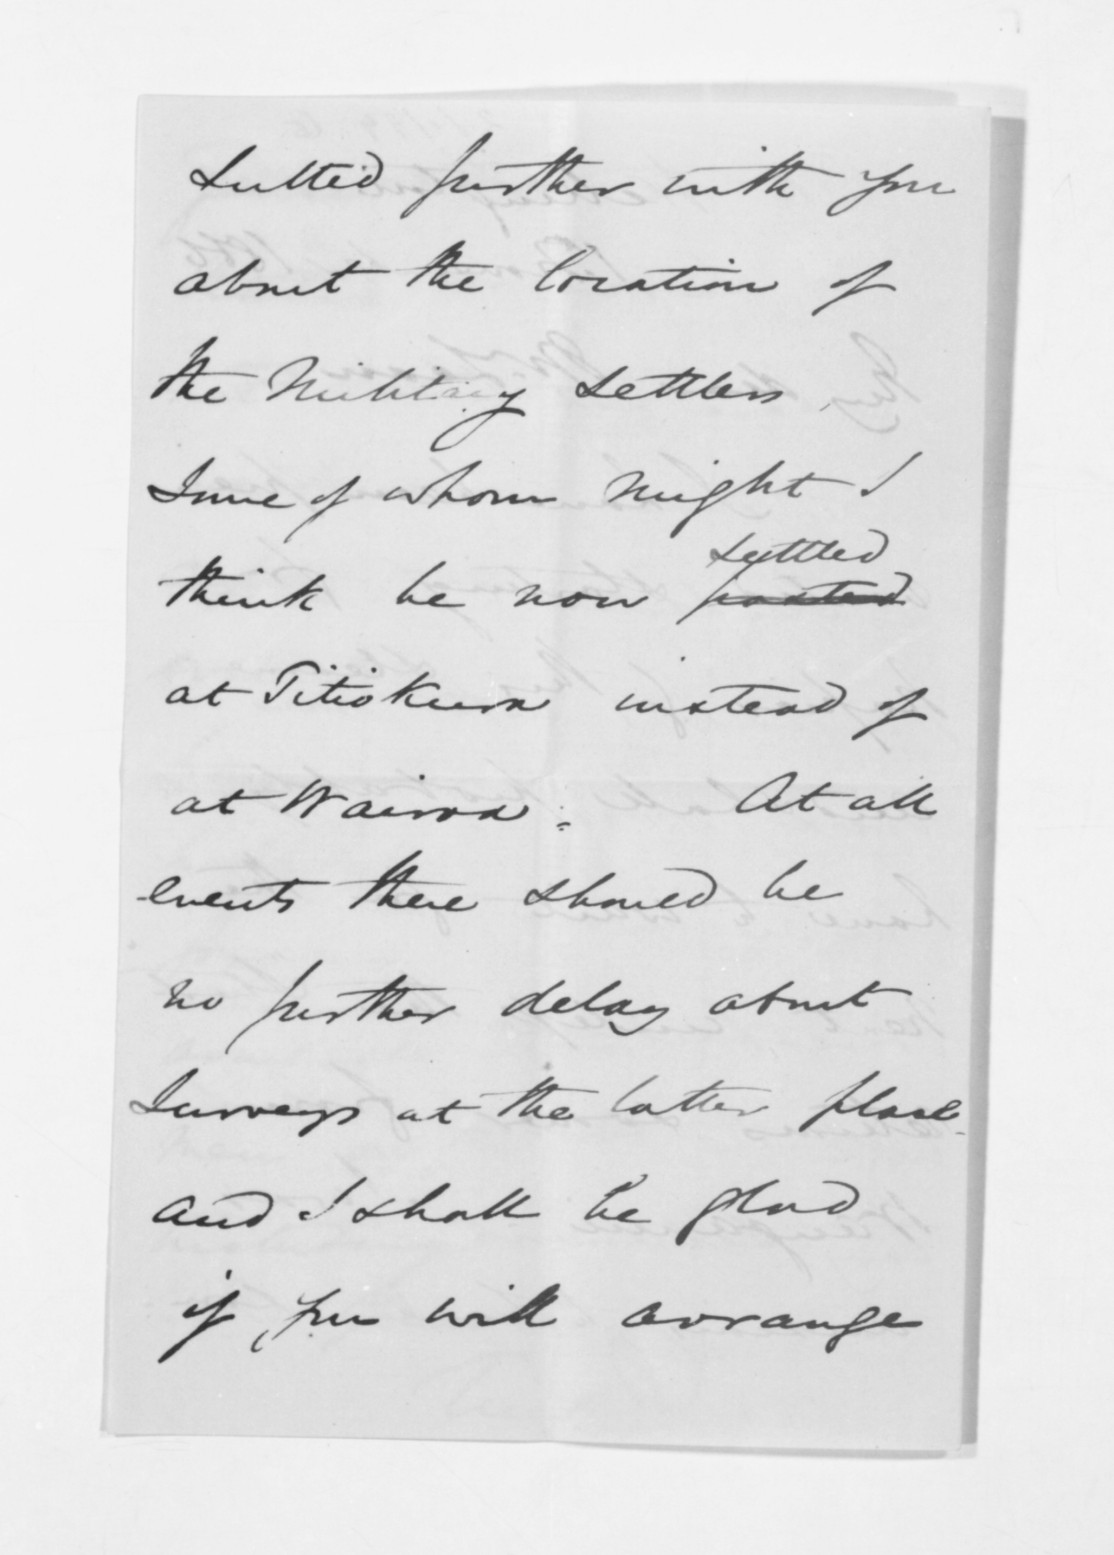 sulted further with you
about the location of
the Military Settlers,
Some of whom might I
think be now settled
posted
at Titiokura instead of
at Wairoa. At all
events there should be
no further delay about
Surveys at the latter place
and I shall be glad
if you will arrange